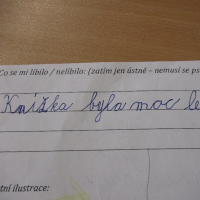 Co se mi líbilo / nelíbilo: (zatím jen ústně – nemusí se ps
Knížka byla moc le
tní ilustrace: